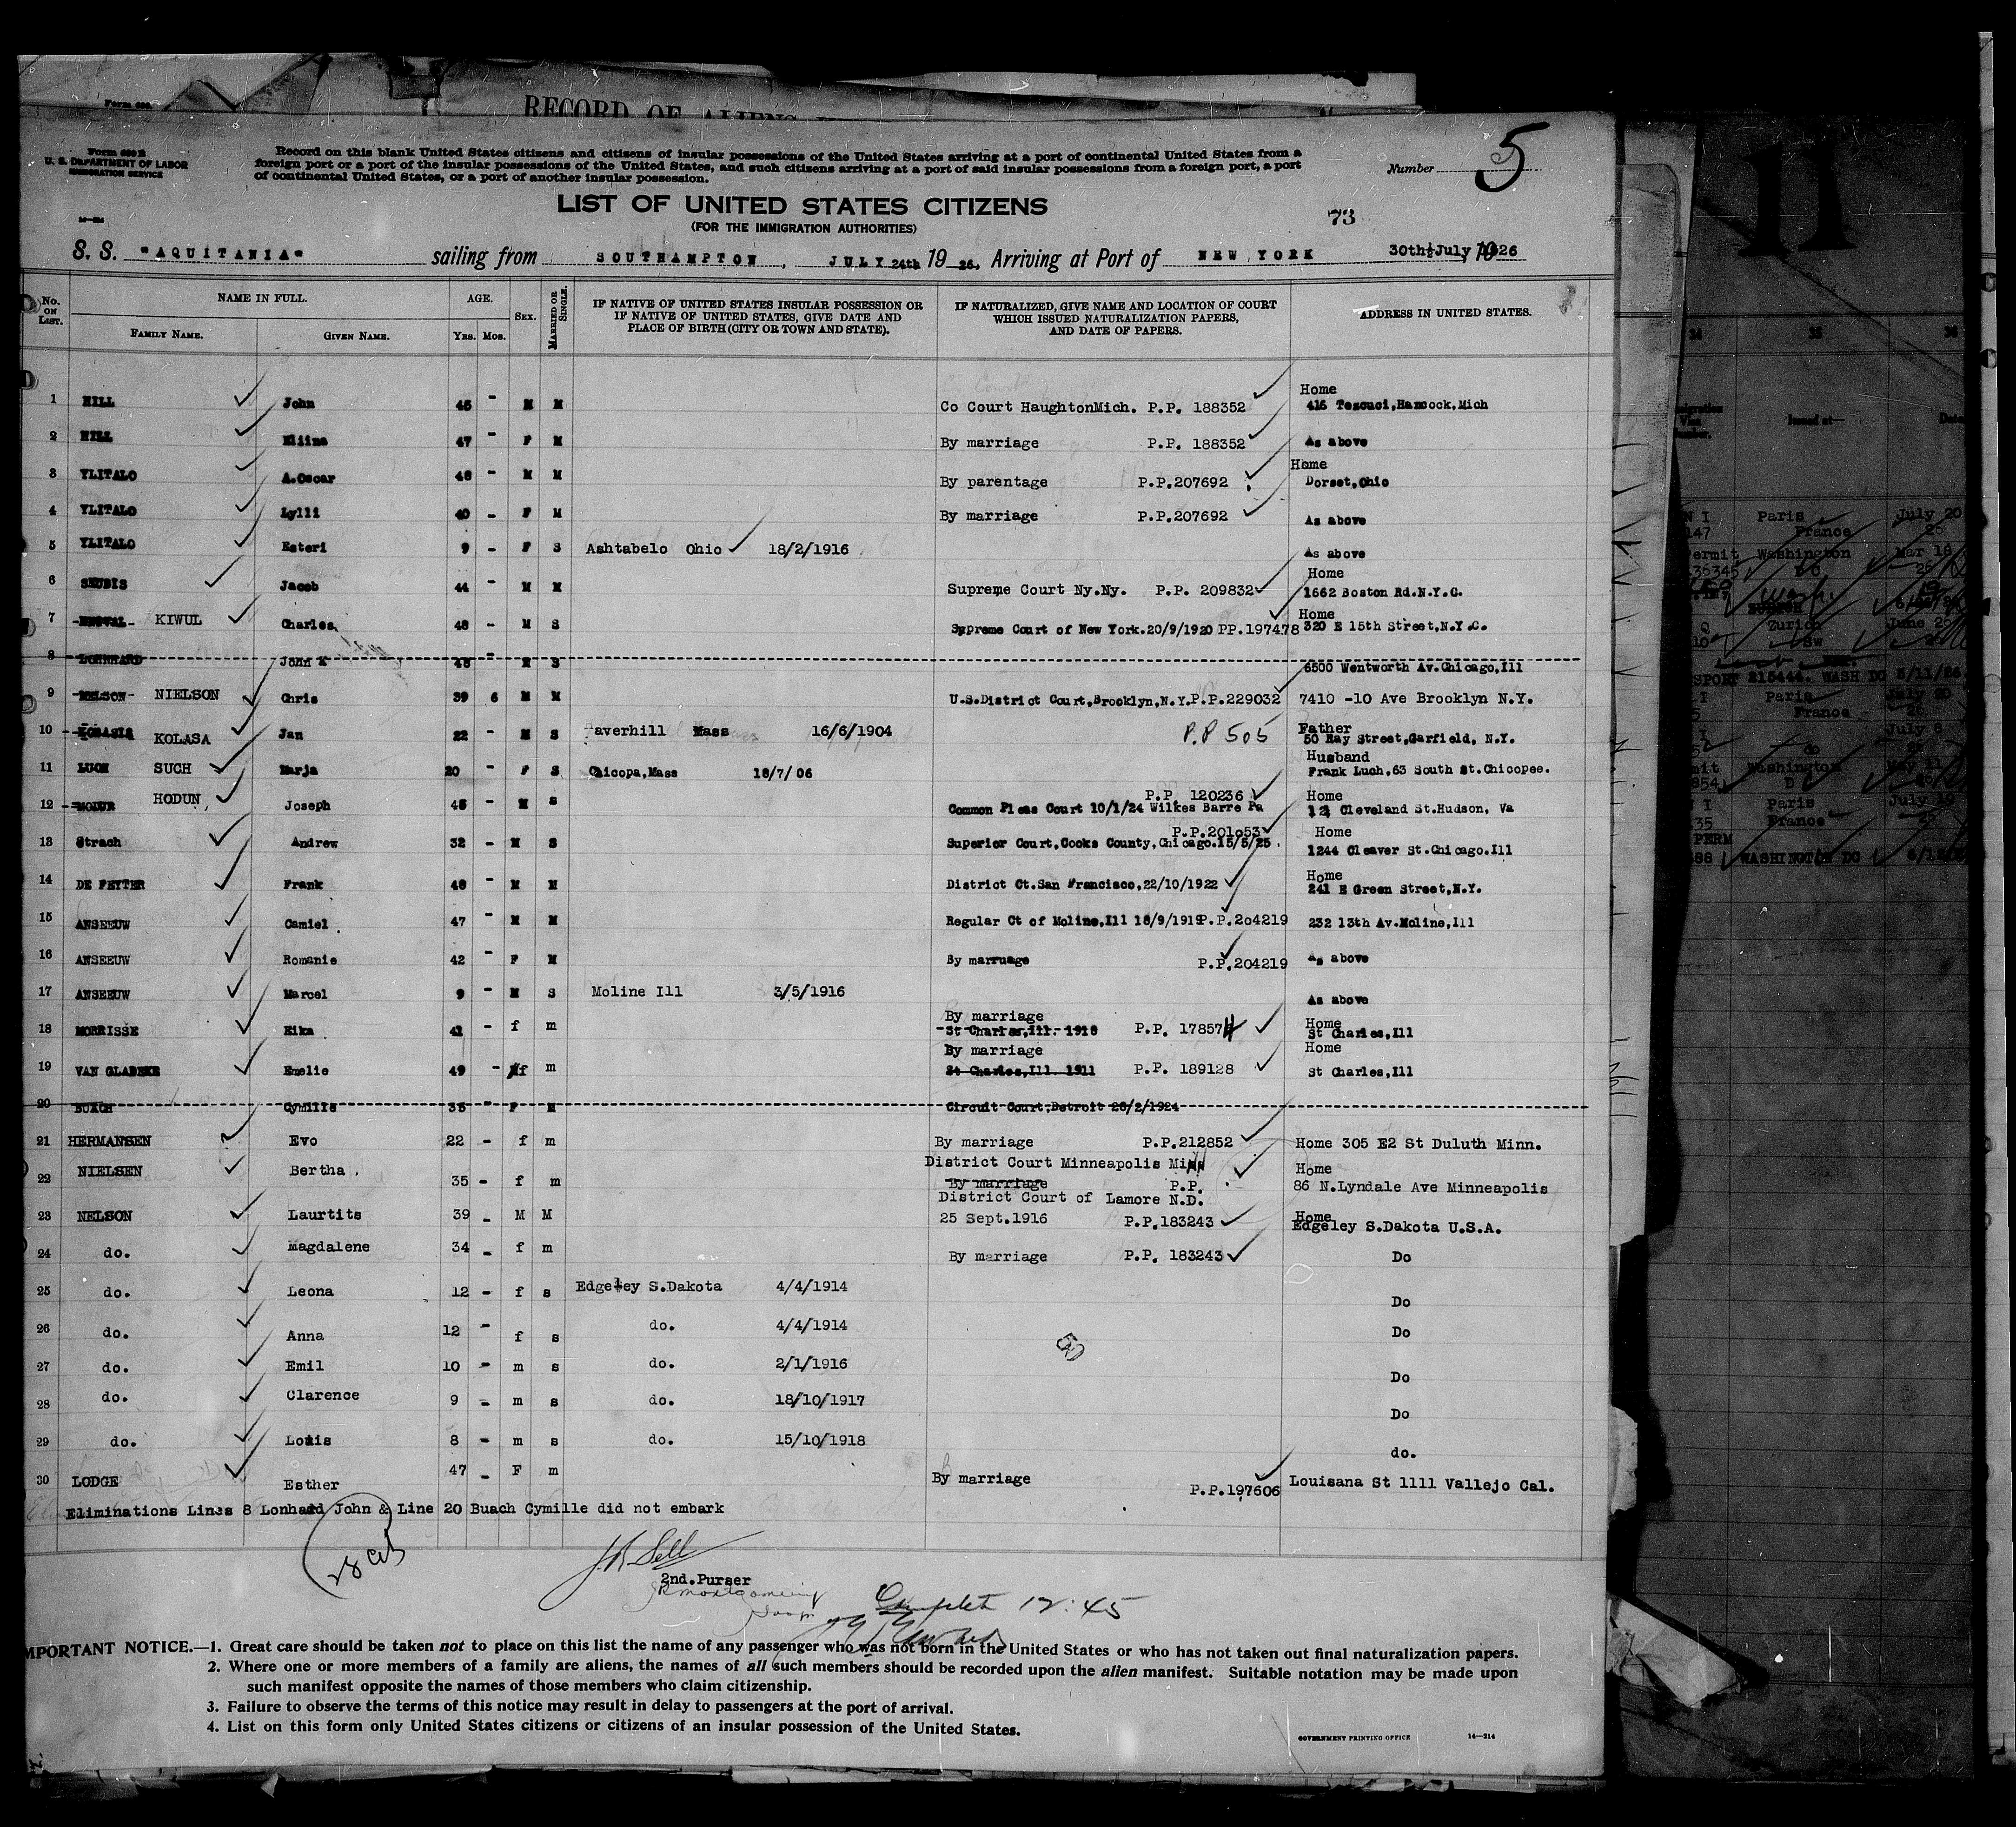 RECORD OF ALIENS
Form 630 B
U. S. DEPARTMENT OF LABOR
IMMIGRATION SERVICE
Record on this blank United States citizens and citizens of insular possessions of the United States arriving at a port of continental United States from a
foreign port or a port of the insular possessions of the United States, and such citizens arriving at a port of said insular possessions from a foreign port, a port
of continental United States, or a port of another insular possession.
Number 5
LIST OF UNITED STATES CITIZENS
(FOR THE IMMIGRATION AUTHORITIES)
73
S. S. "AQUITANIA" sailing from SOUTHAMPTON, JULY 24th 1926, Arriving at Port of NEW YORK 30th July 1926
No. ON LIST. NAME IN FULL. AGE. SEX. MARRIED OR SINGLE. IF NATIVE OF UNITED STATES INSULAR POSSESSION OR IF NATIVE OF UNITED STATES, GIVE DATE AND PLACE OF BIRTH (CITY OR TOWN AND STATE). IF NATURALIZED, GIVE NAME AND LOCATION OF COURT WHICH ISSUED NATURALIZATION PAPERS, AND DATE OF PAPERS. ADDRESS IN UNITED STATES.
FAMILY NAME. GIVEN NAME. YRS. MOS.
1 HILL John 45 - M M Co Court HaughtonMich. P.P. 188352 Home 416 Tezcuci,Hancock,Mich
2 HILL Eliina 47 - F M By marriage P.P. 188352 As above
3 YLITALO A.Oscar 48 - M M By parentage P.P.207692 Home Dorset,Ohio
4 YLITALO Lylli 40 - F M By marriage P.P.207692 As above
5 YLITALO Esteri 9 - F S Ashtabelo Ohio 18/2/1916 As above
6 SKUBIS Jacob 44 - M M Supreme Court Ny.Ny. P.P. 209832 Home 1662 Boston Rd.N.Y.C.
7 KIWUL Charles 48 - M S Supreme Court of New York.20/9/1920 PP.197478 Home 320 E 15th Street,N.Y.C.
8 LONHARD John K 48 - M S 6500 Wentworth Av.Chicago,Ill
9 NELSON NIELSON Chris 39 6 M M U.S.District Court,Brooklyn,N.Y.P.P.229032 7410 -10 Ave Brooklyn N.Y.
10 KOLASA Jan 22 - M S Haverhill Mass 16/6/1904 P.P 505 Father 50 Ray Street,Garfield, N.Y.
11 LUCH SUCH Marja 20 - F S Chicopa,Mass 18/7/06 Husband Frank Luch,63 South St.Chicopee.
12 MODUR HODUN Joseph 45 - M S P.P. 120236 Common Pleas Court 10/1/24 Wilkes Barre Pa Home 12 Cleveland St.Hudson, Va
13 Strach Andrew 32 - M S P.P.201053 Superior Court,Cooks County,Chicago.15/5/25. Home 1244 Cleaver St.Chicago.Ill
14 DE FEYTER Frank 48 - M M District Ct.San Francisco,22/10/1922 Home 241 E Green Street,N.Y.
15 ANSEEUW Camiel 47 - M M Regular Ct of Moline,Ill 18/9/1919 P.P.204219 232 13th Av.Moline,Ill
16 ANSEEUW Romanie 42 - F M By marruage P.P.204219 As above
17 ANSEEUW Marcel 9 - M S Moline Ill 3/5/1916 As above
18 MORRISSE Eika 41 - f m By marriage St Charles,Ill. 1918 P.P. 178574 Home St Charles,Ill
19 VAN GLABEKE Emelie 49 - f m By marriage St Charles,Ill. 1911 P.P. 189128 Home St Charles,Ill
20 BUACH Cymille 35 - F M Circuit Court,Detroit 26/2/1924
21 HERMANSEN Evo 22 - f m By marriage P.P.212852 Home 305 E2 St Duluth Minn.
22 NIELSEN Bertha 35 - f m District Court Minneapolis Minn By marriage P.P. Home 86 N.Lyndale Ave Minneapolis
23 NELSON Laurtits 39 - M M District Court of Lamore N.D. 25 Sept.1916 P.P.183243 Home Edgeley S.Dakota U.S.A.
24 do. Magdalene 34 - f m By marriage P.P. 183243 Do
25 do. Leona 12 - f s Edgeley S.Dakota 4/4/1914 Do
26 do. Anna 12 - f s do. 4/4/1914 Do
27 do. Emil 10 - m s do. 2/1/1916 Do
28 do. Clarence 9 - m s do. 18/10/1917 Do
29 do. Louis 8 - m s do. 15/10/1918 do.
30 LODGE Esther 47 - F m By marriage P.P.197606 Louisana St 1111 Vallejo Cal.
Eliminations Lines 8 Lonhard John & Line 20 Buach Cymille did not embark
2nd.Purser
Complete 12:45
IMPORTANT NOTICE.—1. Great care should be taken not to place on this list the name of any passenger who was not born in the United States or who has not taken out final naturalization papers.
2. Where one or more members of a family are aliens, the names of all such members should be recorded upon the alien manifest. Suitable notation may be made upon
such manifest opposite the names of those members who claim citizenship.
3. Failure to observe the terms of this notice may result in delay to passengers at the port of arrival.
4. List on this form only United States citizens or citizens of an insular possession of the United States.
GOVERNMENT PRINTING OFFICE 14—214
11
34 35 36
Issued at—
Paris July 20
147 France 26
Permit Washington Mar 18
Zurich June 26
Sw 26
SPORT 215444. WASH DC 5/11/26
Paris July 20
France 26
July 8
do
mit Washington May 11
Paris July 19
35 France
PERM
88 WASHINGTON DC